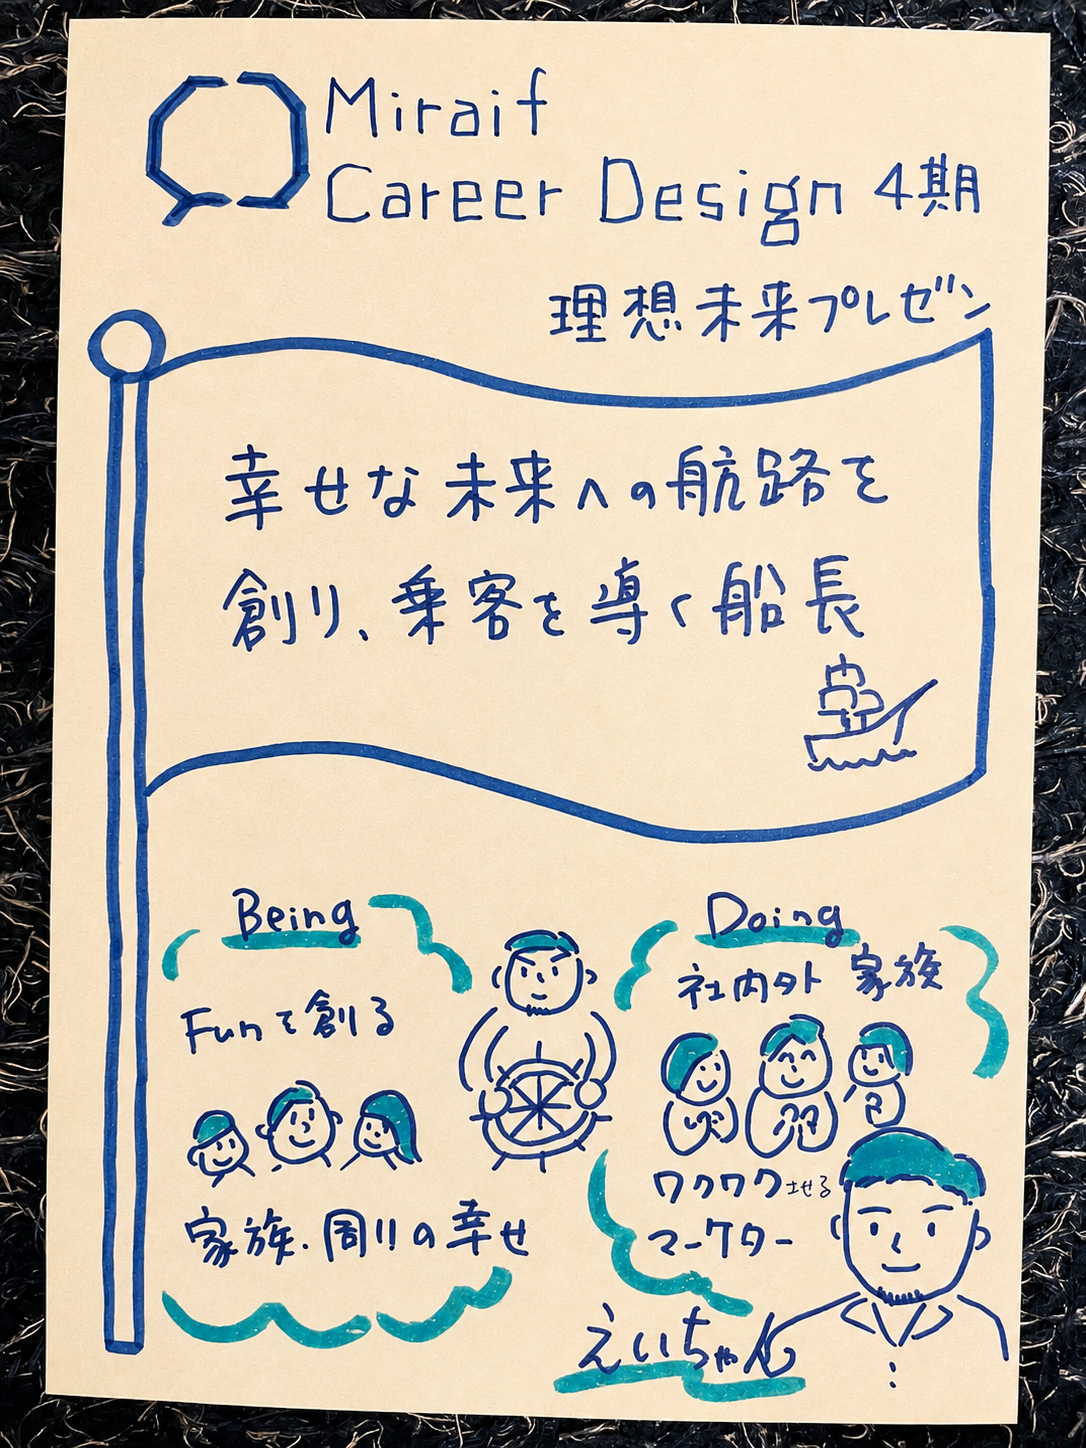 Miraif
Career Design 4期
理想未来プレゼン
幸せな未来への航路を
創り、乗客を導く船長
Being
Funで創る
家族・周りの幸せ
Doing
社内外 家族
ワクワクさせる
マーケター
えいちゃん